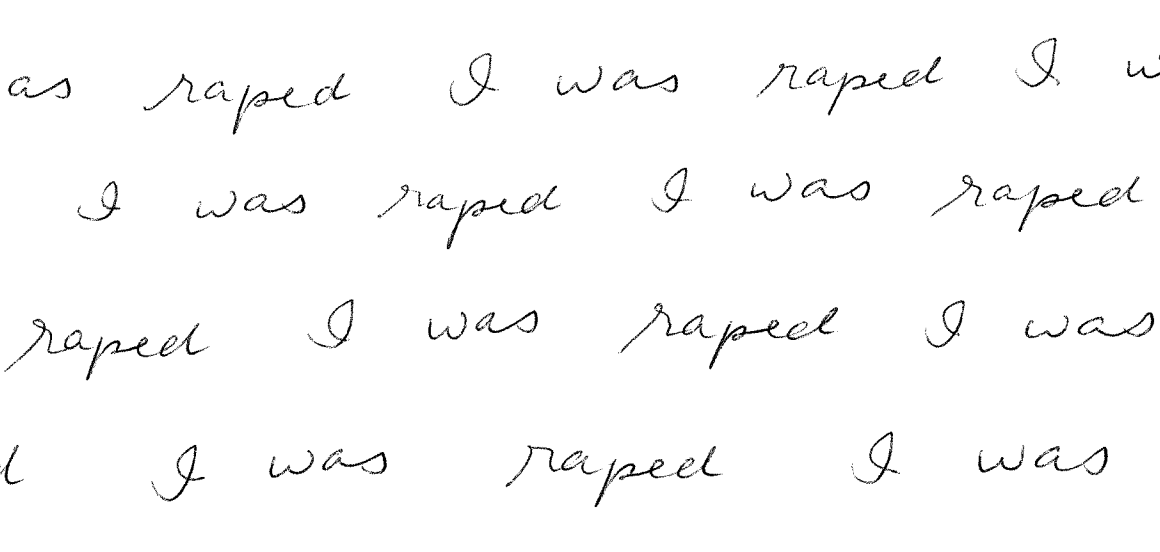 as raped I was raped I w
I was raped I was raped
raped I was raped I was
d I was raped I was